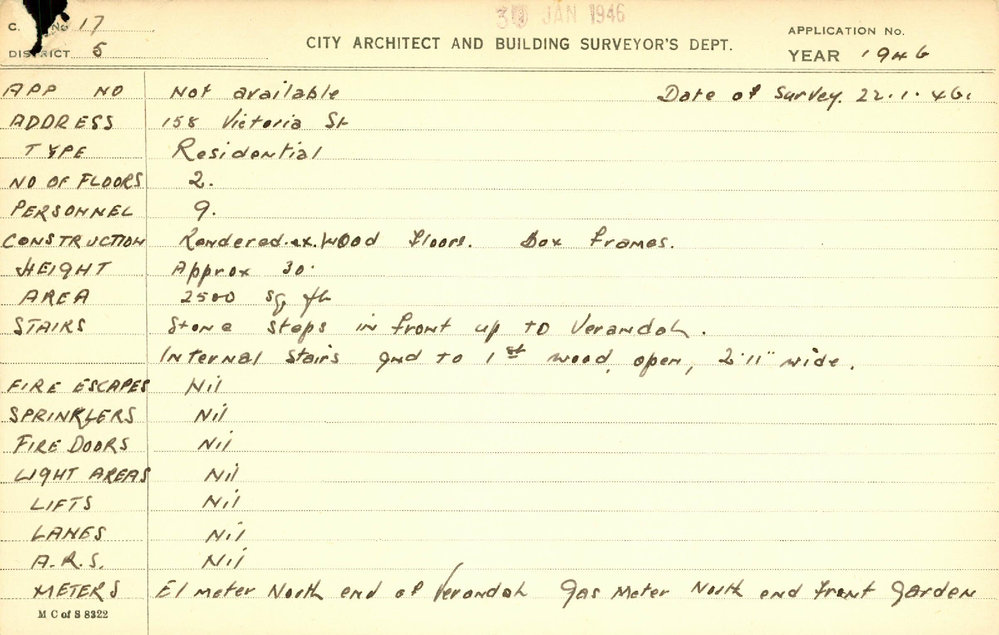 30 JAN 1946
C. No 17
DISTRICT 5
CITY ARCHITECT AND BUILDING SURVEYOR'S DEPT.
APPLICATION No.
YEAR 1946
APP NO Not available Date of Survey. 22.1.46.
ADDRESS 158 Victoria St
TYPE Residential
NO OF FLOORS 2.
PERSONNEL 9.
CONSTRUCTION Rendered.ex. Wood Floors. Box Frames.
HEIGHT Approx 30'
AREA 2500 Sq ft
STAIRS Stone steps in front up to Verandah.
Internal Stairs gnd to 1st wood, open, 2'11" wide.
FIRE ESCAPES Nil
SPRINKLERS Nil
FIRE DOORS Nil
LIGHT AREAS Nil
LIFTS Nil
LANES Nil
A.R.S. Nil
METERS El meter North end of Verandah Gas Meter North end front Garden
M C of S 8322